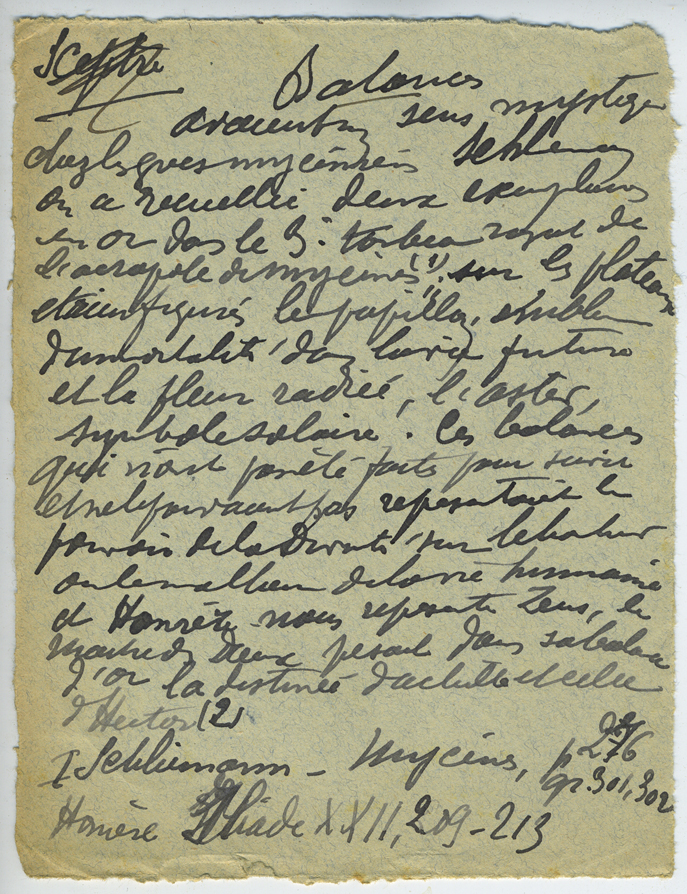 Sceptre
Balances
avaient un sens mystique
chez les grecs mycéniens Schliemann
on a recueilli deux exemplaires
en or dans le 3e tombeau royal de
l'acropole de mycènes (1), sur les plateaux
étaient figurés le papillon, emblème
d'immortalité dans la vie future
et la fleur radiée, l'aster,
symbole solaire. Ces balances
qui n'ont pas été faites pour servir
et ne le pouvaient pas représentaient le
pouvoir de la Divinité sur le bonheur
ou le malheur de la vie humaine
et Homère nous représente Zeus, le
maître des Dieux pesant dans sa balance
d'or la destinée d'achille et celle
d'Hector (2)
I Schliemann - Mycènes, p 276
gr. 301, 302
Homère Iliade XXII, 209-213